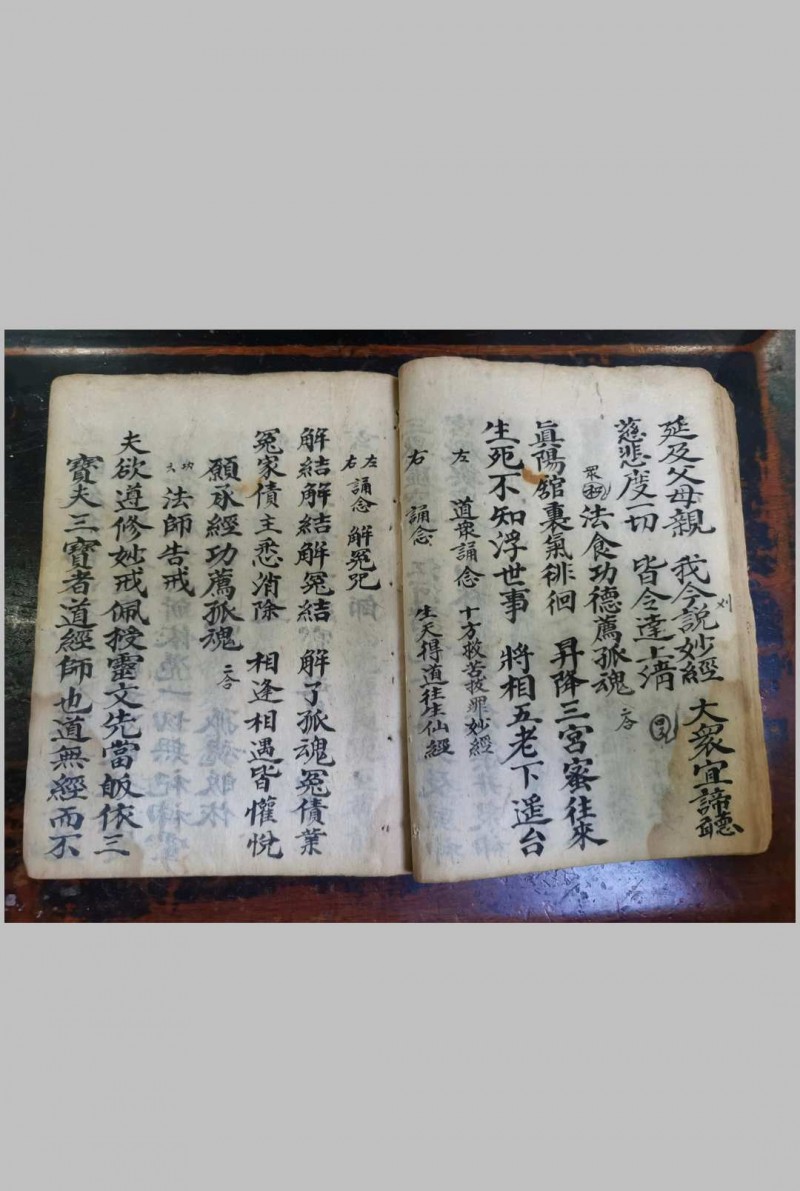 延及父母親 我今說妙經 大衆宜諦聽
慈悲度一切 皆令達上清
法食功德薦孤魂 二答
眞陽舘裏氣徘徊 昇降三宮蜜往來
生死不知浮世事 將相五老下遥台
左 道衆誦念 十方救苦拔罪妙經
右 誦念 生天得道往生仙經
左右 誦念 解冤咒
解結解結解冤結 解了孤魂冤債業
冤家債主悉消除 相逢相遇皆懽悅
願承經功薦孤魂 二答
法師告戒
夫欲遵修妙戒佩授靈文先當皈依三
寶夫三寶者道經師也道無經而不